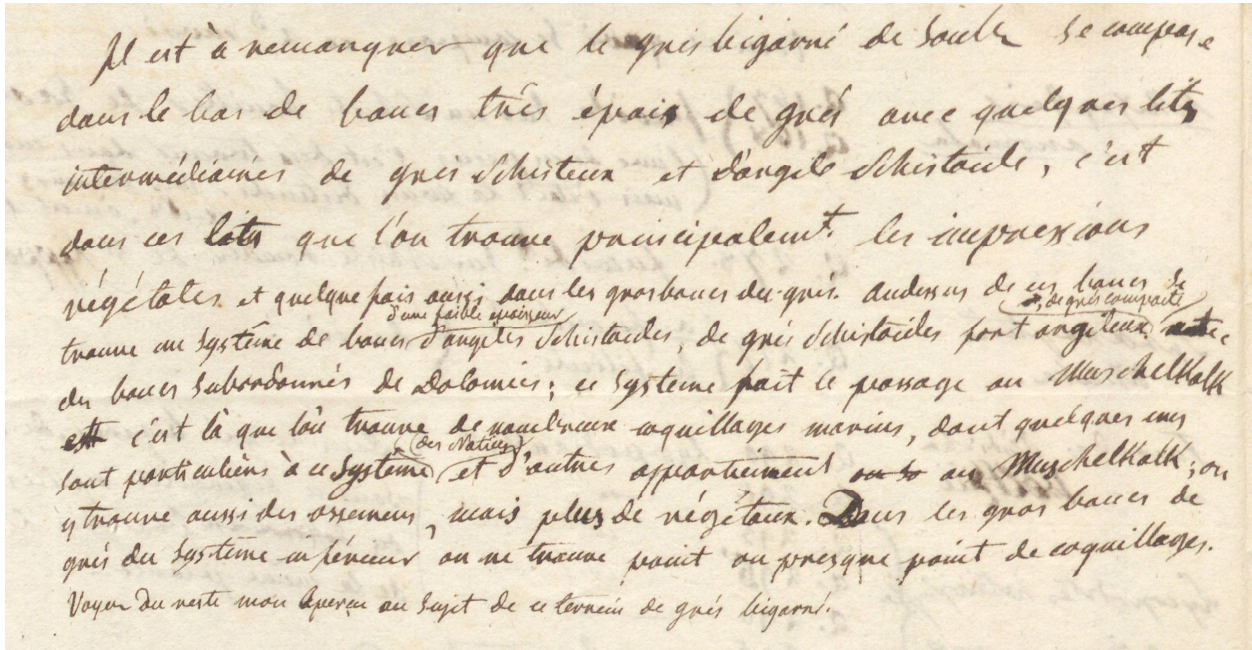 Il est à remarquer que le grès bigarré de Soultz se compose
dans le bas de bancs très épais de grès avec quelques lits
intermédiaires de grès schisteux et d'argile schistoide, c'est
dans ces lits que l'on trouve principalemt. les impressions
végétales et quelque fois aussi dans les gros bancs du grès. Audessus de ces bancs se
trouve un système de bancs d'une faible épaisseur d'argiles schistoides, de grès schistoides fort argileux, de grès compacte avec
des bancs subordonnés de Dolomies; ce système fait le passage au Muschelkalk
c'est là que l'on trouve de nombreux coquillages marins, dont quelques uns
sont particuliers à ce système (des Natices) et d'autres appartiennent au Muschelkalk; on
y trouve aussi des ossemens, mais plus de végétaux. Dans les gros bancs de
grès du système inférieur on ne trouve point ou presque point de coquillages.
Voyez du reste mon aperçu au sujet de ce terrein de grès bigarré.